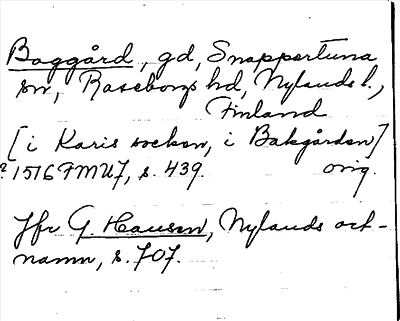 Baggård, gd, Snappertuna
sn, Raseborgs hd, Nylands l.,
Finland
[i Karis socken, i Bakgården]
? 1516 FMU7, s. 439. orig.
Jfr G. Hausen, Nylands ort-
namn, s. 707.